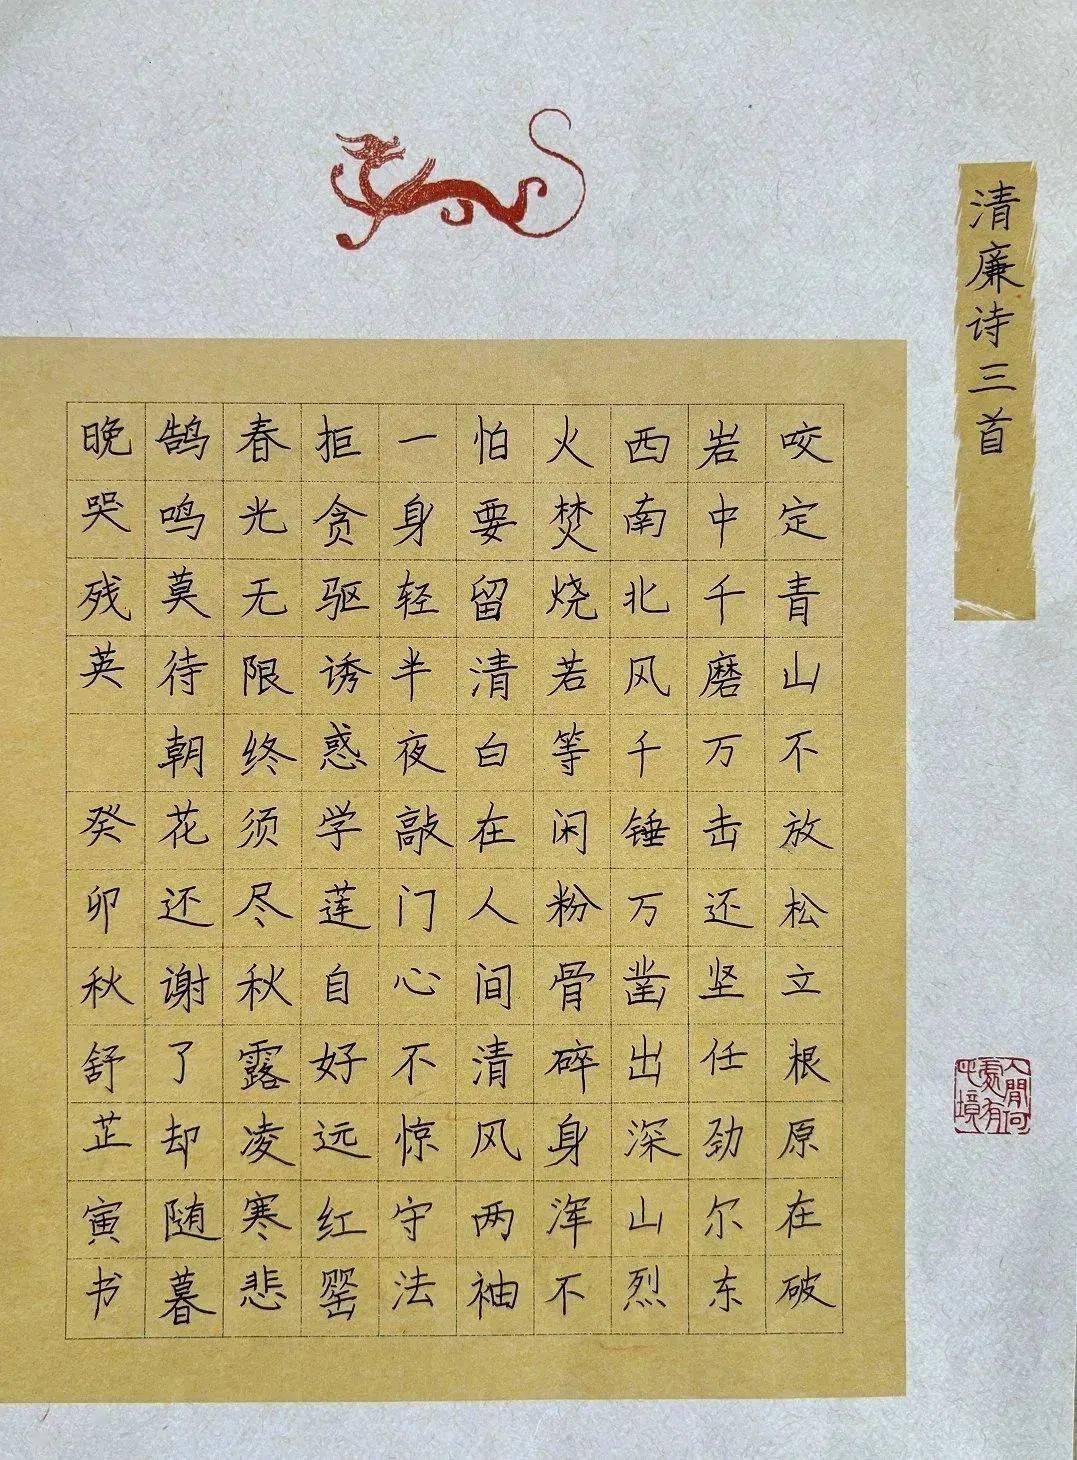 清廉诗三首
咬定青山不放松立根原在破
岩中千磨万击还坚任劲尔东
西南北风千锤万凿出深山烈
火焚烧若等闲粉骨碎身浑不
怕要留清白在人间清风两袖
一身轻半夜敲门心不惊守法
拒贪驱诱惑学莲自好远红罂
春光无限终须尽秋露凌寒悲
鹄鸣莫待朝花还谢了却随暮
晚哭残英 癸卯秋舒芷寅书
人間何
處有
此境